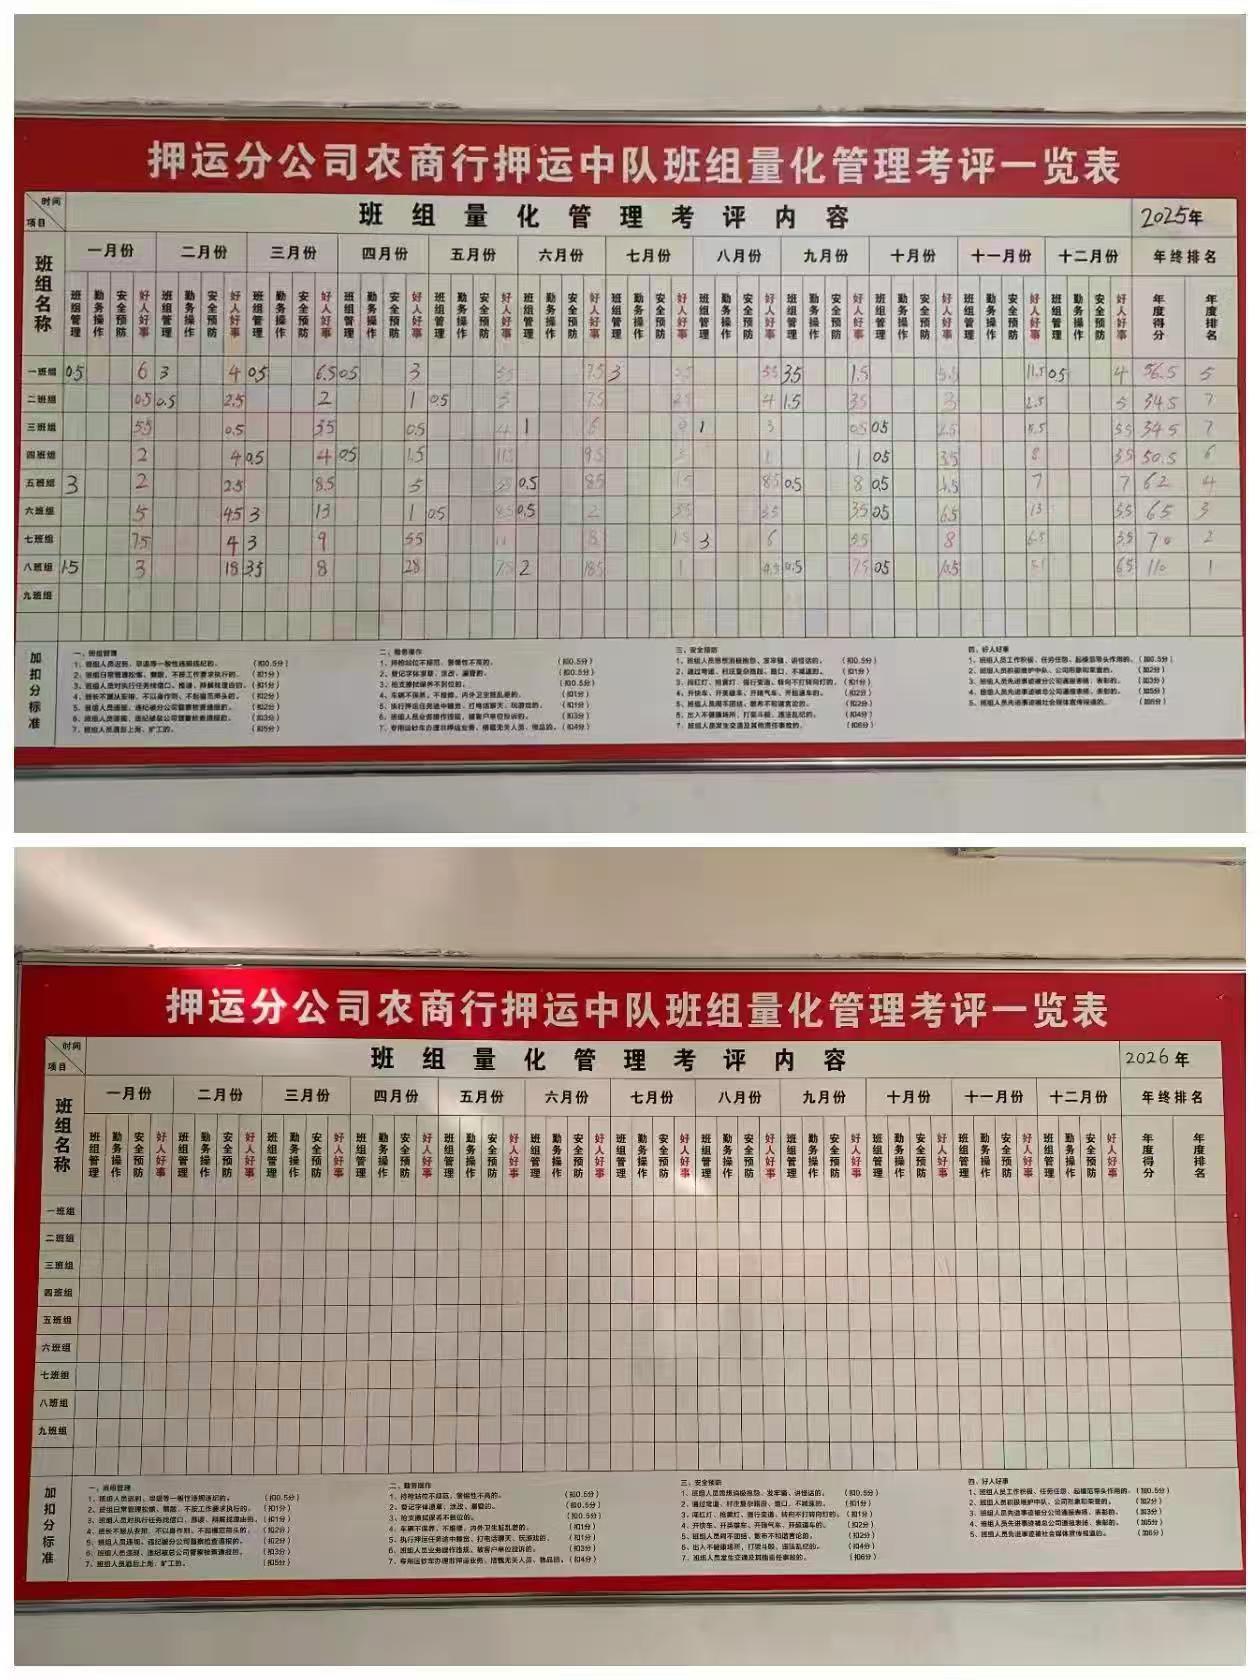 押运分公司农商行押运中队班组量化管理考评一览表
时间 项目 班组量化管理考评内容 2025年
班组名称 一月份 二月份 三月份 四月份 五月份 六月份 七月份 八月份 九月份 十月份 十一月份 十二月份 年终排名
班组管理 勤务操作 安全预防 好人好事 班组管理 勤务操作 安全预防 好人好事 班组管理 勤务操作 安全预防 好人好事 班组管理 勤务操作 安全预防 好人好事 班组管理 勤务操作 安全预防 好人好事 班组管理 勤务操作 安全预防 好人好事 班组管理 勤务操作 安全预防 好人好事 班组管理 勤务操作 安全预防 好人好事 班组管理 勤务操作 安全预防 好人好事 班组管理 勤务操作 安全预防 好人好事 班组管理 勤务操作 安全预防 好人好事 班组管理 勤务操作 安全预防 好人好事 年度得分 年度排名
一班组 0.5 6 3 4 0.5 6.5 0.5 3 7.5 3 5.5 3.5 1.5 11.5 0.5 4 56.5 5
二班组 0.5 0.5 2.5 2 1 0.5 3 7.5 4 1.5 3.5 3 2.5 5 34.5 7
三班组 5.5 0.5 3.5 0.5 4 1 6 1 3 0.5 0.5 5.5 34.5 7
四班组 2 4 0.5 4 0.5 1.5 9.5 1 0.5 3.5 8 3.5 50.5 6
五班组 3 2 2.5 8.5 5 0.5 8.5 8.5 0.5 8 0.5 7 7 62 4
六班组 5 4.5 3 13 1 0.5 0.5 2 3.5 3.5 0.5 6.5 13 5.5 65 3
七班组 7.5 4 3 9 5.5 8 1.5 3 6 5.5 8 6.5 3.5 70 2
八班组 1.5 3 18 3.5 8 28 7.5 2 18.5 0.5 7.5 0.5 6.5 110 1
九班组
加扣分标准
一、班组管理
1、班组人员迟到、早退等一般性违规违纪的。（扣0.5分）
2、班组日常管理松懈、懒散、不按工作要求执行的。（扣1分）
3、班组人员对执行任务找借口、推诿、拜佛找理由的。（扣1分）
4、班长不服从安排、不以身作则、不起模范带头的。（扣2分）
5、班组人员违规、违纪被分公司督察检查通报的。（扣2分）
6、班组人员违规、违纪被总公司督察检查通报的。（扣3分）
7、班组人员酒后上岗、旷工的。（扣5分）
二、勤务操作
1、持枪站位不规范、警惕性不高的。（扣0.5分）
2、登记字体潦草、涂改、漏登的。（扣0.5分）
3、枪支擦拭保养不到位的。（扣0.5分）
4、车辆不保养、不维修、内外卫生脏乱差的。（扣1分）
5、执行押运任务途中睡觉、打电话聊天、玩游戏的。（扣1分）
6、班组人员业务操作违规、被客户单位投诉的。（扣3分）
7、专用运钞车办理非押运业务、搭载无关人员、物品的。（扣4分）
三、安全预防
1、班组人员思想消极抱怨、发牢骚、讲怪话的。（扣0.5分）
2、通过弯道、村庄复杂路段、路口、不减速的。（扣1分）
3、闯红灯、抢黄灯、强行变道、转向不打转向灯的。（扣1分）
4、开快车、开英雄车、开赌气车、开超速车的。（扣2分）
5、班组人员间不团结、散布不和谐言论的。（扣2分）
6、出入不健康场所、打架斗殴、违法乱纪的。（扣4分）
7、班组人员发生交通及其他责任事故的。（扣6分）
四、好人好事
1、班组人员工作积极、任劳任怨、起模范带头作用的。（加0.5分）
2、班组人员积极维护中队、公司形象和荣誉的。（加2分）
3、班组人员先进事迹被分公司通报表扬、表彰的。（加3分）
4、班组人员先进事迹被总公司通报表扬、表彰的。（加5分）
5、班组人员先进事迹被社会媒体宣传报道的。（加6分）
押运分公司农商行押运中队班组量化管理考评一览表
时间 项目 班组量化管理考评内容 2026年
班组名称 一月份 二月份 三月份 四月份 五月份 六月份 七月份 八月份 九月份 十月份 十一月份 十二月份 年终排名
班组管理 勤务操作 安全预防 好人好事 班组管理 勤务操作 安全预防 好人好事 班组管理 勤务操作 安全预防 好人好事 班组管理 勤务操作 安全预防 好人好事 班组管理 勤务操作 安全预防 好人好事 班组管理 勤务操作 安全预防 好人好事 班组管理 勤务操作 安全预防 好人好事 班组管理 勤务操作 安全预防 好人好事 班组管理 勤务操作 安全预防 好人好事 班组管理 勤务操作 安全预防 好人好事 班组管理 勤务操作 安全预防 好人好事 班组管理 勤务操作 安全预防 好人好事 年度得分 年度排名
一班组
二班组
三班组
四班组
五班组
六班组
七班组
八班组
九班组
加扣分标准
一、班组管理
1、班组人员迟到、早退等一般性违规违纪的。（扣0.5分）
2、班组日常管理松懈、懒散、不按工作要求执行的。（扣1分）
3、班组人员对执行任务找借口、推诿、拜佛找理由的。（扣1分）
4、班长不服从安排、不以身作则、不起模范带头的。（扣2分）
5、班组人员违规、违纪被分公司督察检查通报的。（扣2分）
6、班组人员违规、违纪被总公司督察检查通报的。（扣3分）
7、班组人员酒后上岗、旷工的。（扣5分）
二、勤务操作
1、持枪站位不规范、警惕性不高的。（扣0.5分）
2、登记字体潦草、涂改、漏登的。（扣0.5分）
3、枪支擦拭保养不到位的。（扣0.5分）
4、车辆不保养、不维修、内外卫生脏乱差的。（扣1分）
5、执行押运任务途中睡觉、打电话聊天、玩游戏的。（扣1分）
6、班组人员业务操作违规、被客户单位投诉的。（扣3分）
7、专用运钞车办理非押运业务、搭载无关人员、物品的。（扣4分）
三、安全预防
1、班组人员思想消极抱怨、发牢骚、讲怪话的。（扣0.5分）
2、通过弯道、村庄复杂路段、路口、不减速的。（扣1分）
3、闯红灯、抢黄灯、强行变道、转向不打转向灯的。（扣1分）
4、开快车、开英雄车、开赌气车、开超速车的。（扣2分）
5、班组人员间不团结、散布不和谐言论的。（扣2分）
6、出入不健康场所、打架斗殴、违法乱纪的。（扣4分）
7、班组人员发生交通及其他责任事故的。（扣6分）
四、好人好事
1、班组人员工作积极、任劳任怨、起模范带头作用的。（加0.5分）
2、班组人员积极维护中队、公司形象和荣誉的。（加2分）
3、班组人员先进事迹被分公司通报表扬、表彰的。（加3分）
4、班组人员先进事迹被总公司通报表扬、表彰的。（加5分）
5、班组人员先进事迹被社会媒体宣传报道的。（加6分）